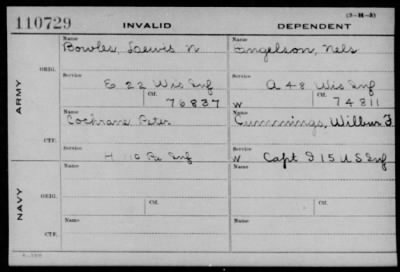 (3-H-5)
110729 INVALID DEPENDENT
Name Name
Bowles, Lewis N Engelson, Nels
ORIG.
Service Service
E 22 Wis Inf A 48 Wis Inf
Ctf. Ctf.
76837 W 74811
ARMY
Name Name
Cochrane Peter Cummings, Wilbur F
CTF.
Service Service
H 10 Pa Inf W Capt F 15 U S Inf
Name Name
ORIG.
Ctf. Ctf.
NAVY
Name Name
CTF.